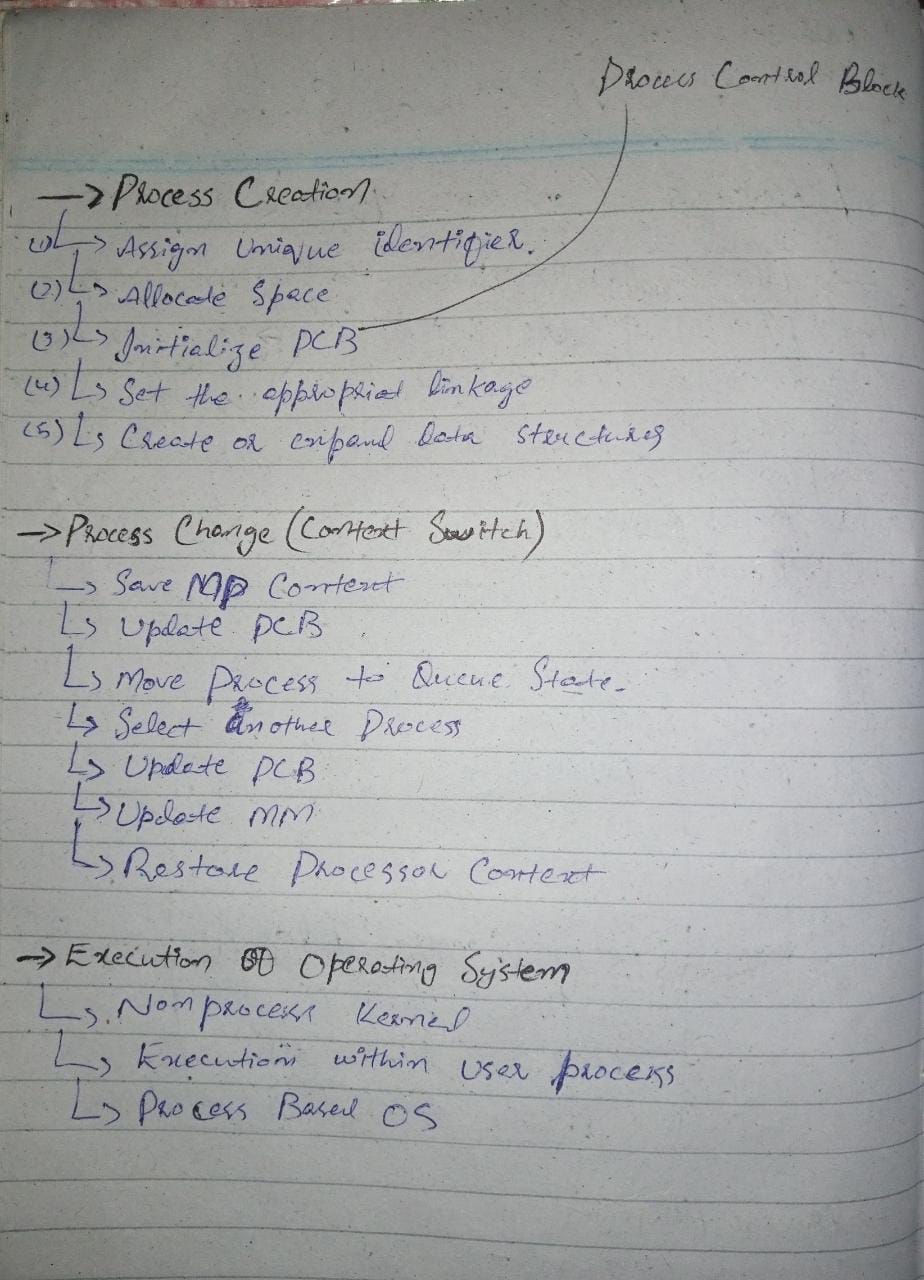 Process Control Block
→ Process Creation
(1) ↳ Assign Unique identifier.
(2) ↳ Allocate Space
(3) ↳ Initialize PCB
(4) ↳ Set the appropriat linkage
(5) ↳ Create or expand Data structures
→ Process Change (Context Switch)
↳ Save MP Context
↳ Update PCB
↳ Move Process to Queue State.
↳ Select Another Process
↳ Update PCB
↳ Update MM
↳ Restore Processor Context
→ Execution Of Operating System
↳ Non process Kernel
↳ Execution within user process
↳ Process Based OS